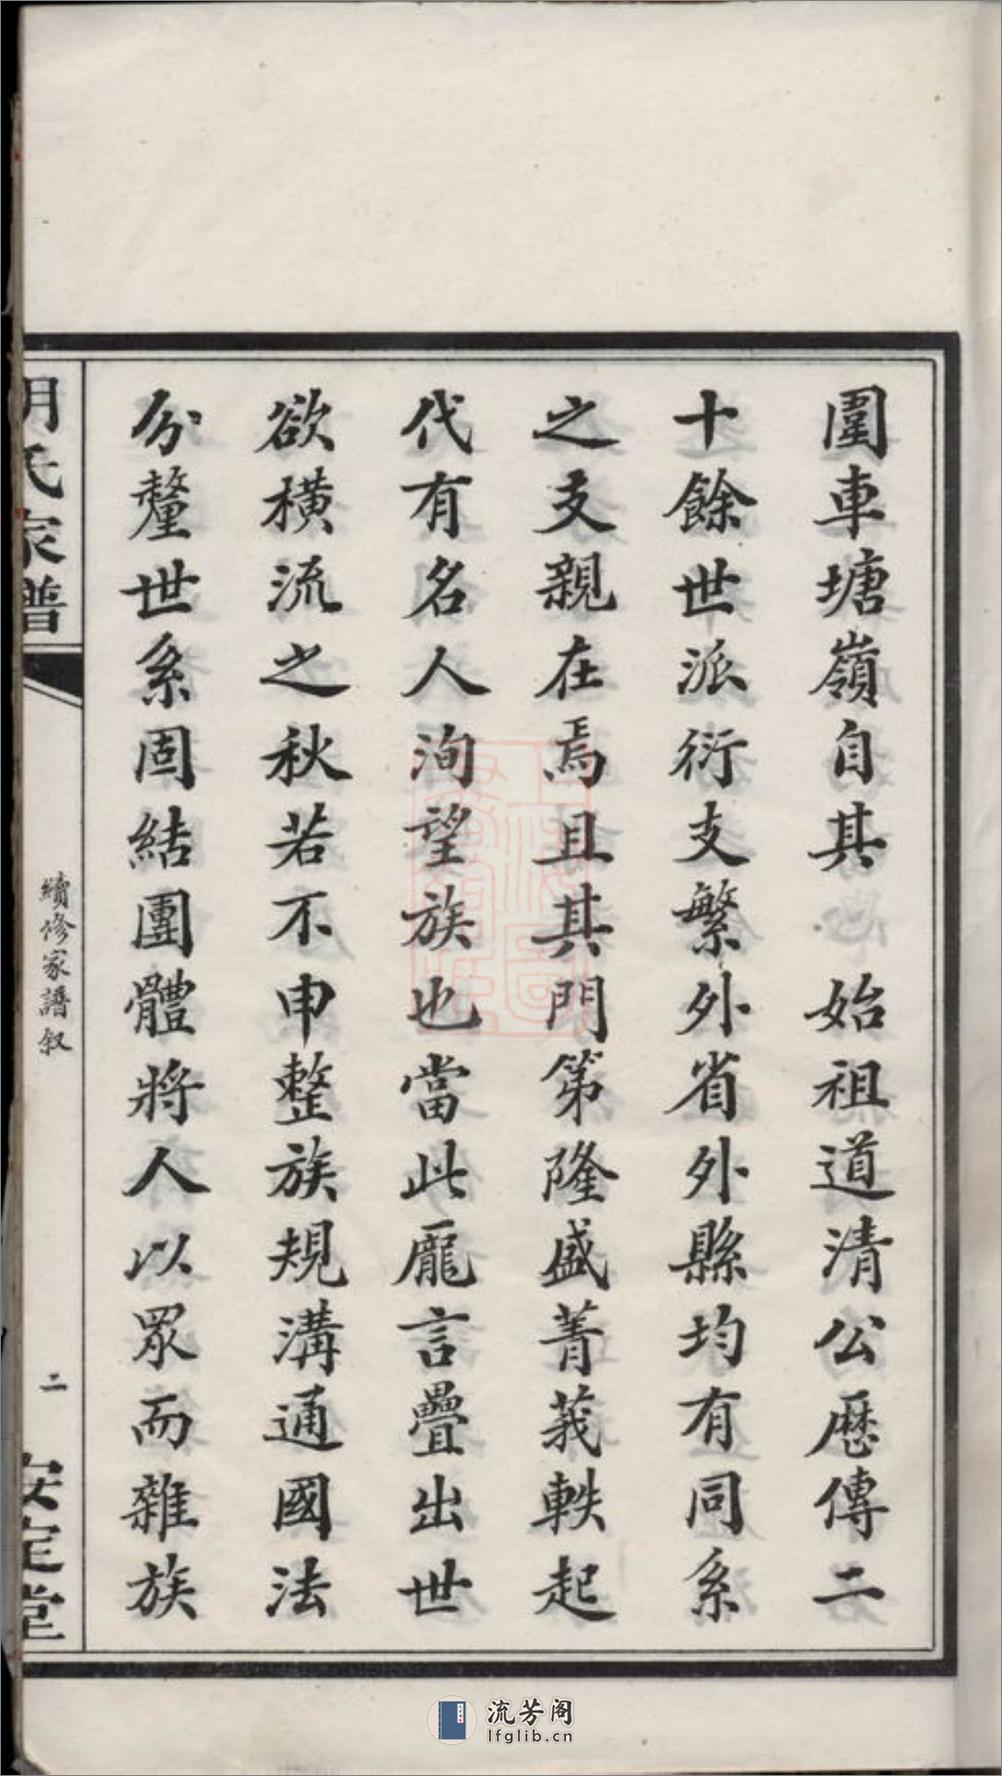 圍車塘嶺自其　始祖道清公歷傳二
十餘世派衍支繁外省外縣均有同系
之支親在焉且其門第隆盛菁莪軼起
代有名人洵望族也當此龐言疊出世
欲橫流之秋若不申整族規溝通國法
分釐世系固結團體將人以眾而雜族
胡氏家譜
續修家譜叙
二
安定堂
流芳阁
lfglib.cn